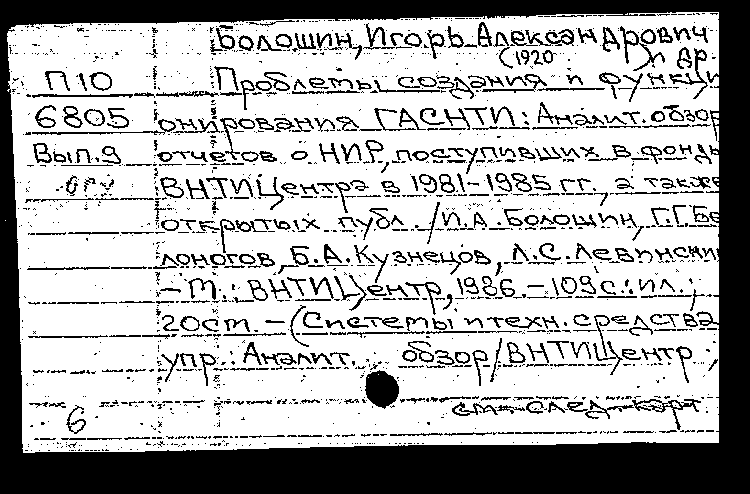 Болошин, Игорь Александрович
(1920 ) и др.
П10 Проблемы создания и функци
6805 онирования ГАСНТИ: Аналит. обзор
Вып.9 отчетов о НИР, поступивших в фонды
ВНТИЦентра в 1981-1985 гг., а также
открытых публ. /И.А.Болошин, Г.Г.Бе
лоногов, Б.А.Кузнецов, Л.С.Левински
– М.: ВНТИЦентр, 1986. – 109с.: ил.;
20см. – (Системы и техн. средства
упр.: Аналит. обзор/ВНТИЦентр ;
см. след. карт.
6